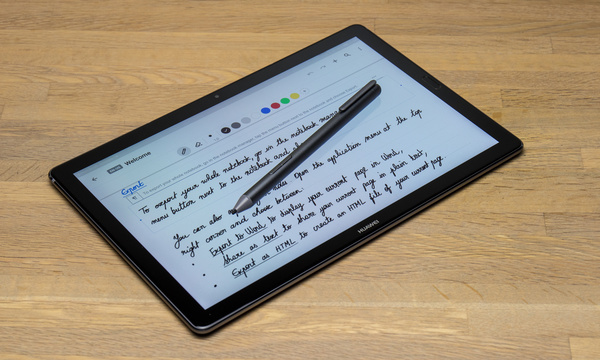 Welcome
Export
To export your whole notebook, go in the notebook
menu button next to the notebook and
You can also Open the application menu at the top
right corner and choose between:
• Export to Word to display your current page in Word,
• Share as text to share your current page in plain text,
• Export as HTML to create an HTML file of your current page.
HUAWEI